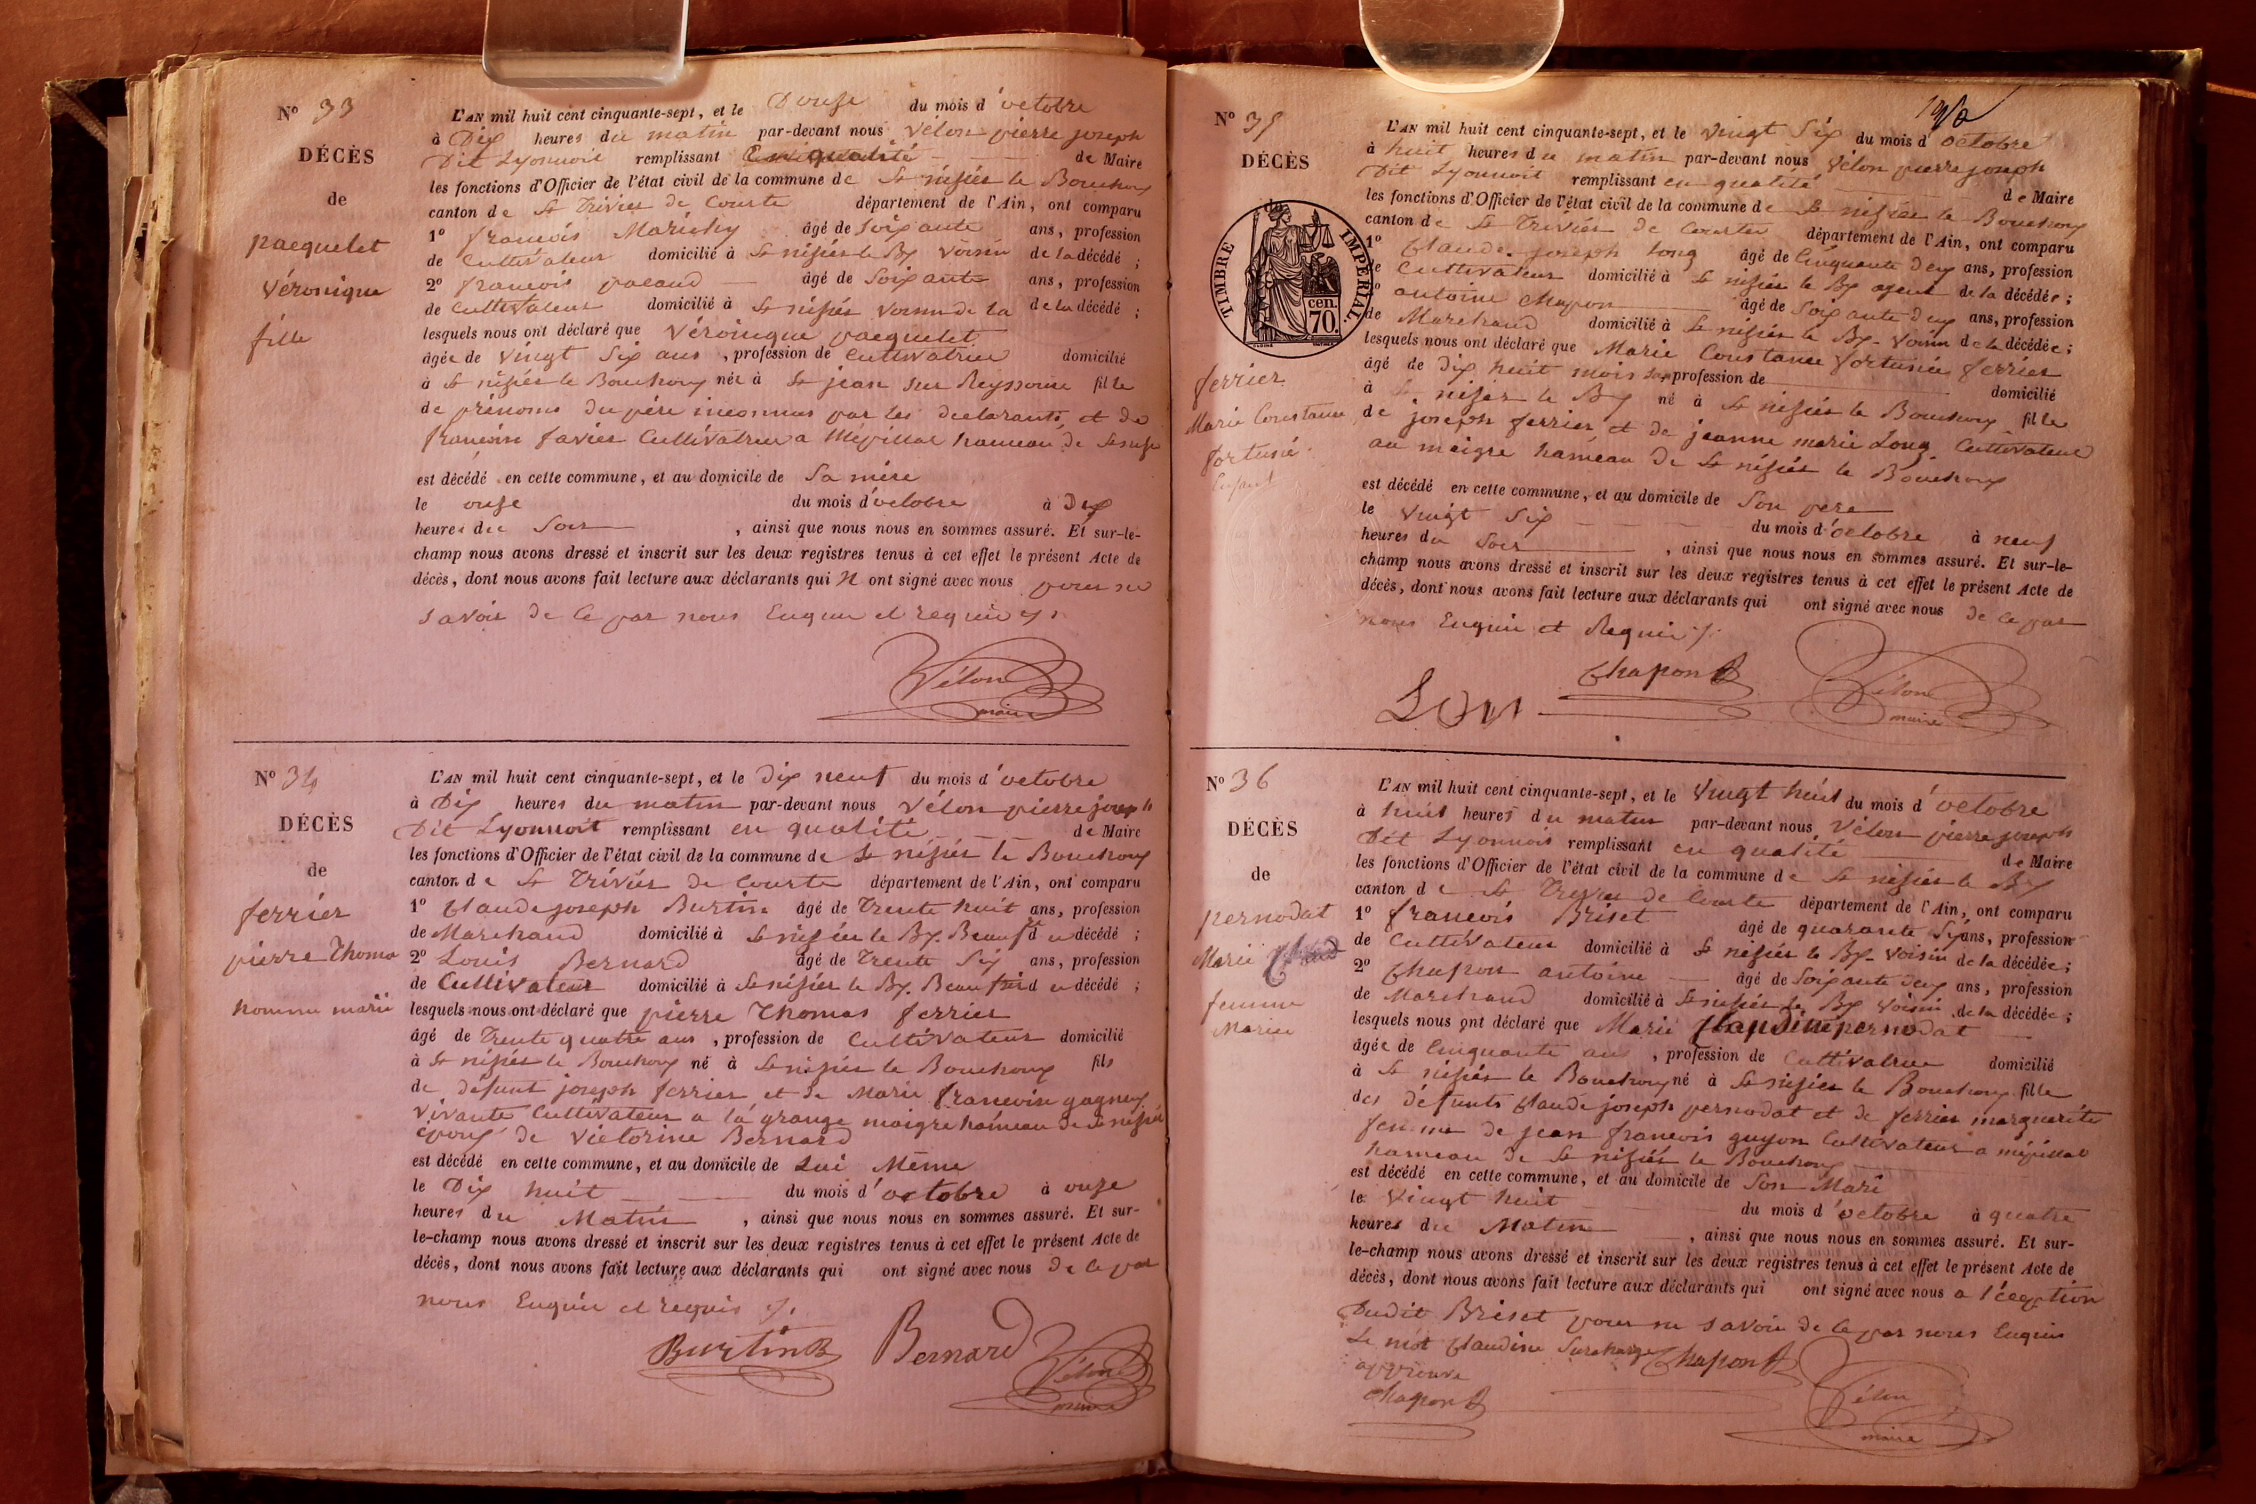 N° 33
DÉCÈS
de
pacquelet
Véronique
fille
L'AN mil huit cent cinquante-sept, et le Douze du mois d'octobre
à Dix heures du matin par-devant nous Vélon pierre joseph
Dit Lyonnoit remplissant En qualité de Maire
les fonctions d'Officier de l'état civil de la commune de St nifiés le Bouchoux
canton de St Triviés de Courte département de l'Ain, ont comparu
1° françois âgé de Soixante ans, profession
de Cultivateur domicilié à St nifiés le Bx Voisin de la décédé ;
2° françois pacaud âgé de Soixante ans, profession
de Cultivateur domicilié à St nifiés Voisin de la de la décédé ;
lesquels nous ont déclaré que Véronique pacquelet
âgée de Vingt Six ans, profession de Cultivatrice domicilié
à St nifiés le Bouchoux née à St jean sur Reyssouse fille
de prénoms du père inconnus par les declarants et de
françoise favier Cultivatrice a Mépillat hameau de St nifié
est décédé en cette commune, et au domicile de Sa mère
le onze du mois d'octobre à Dix
heures du Soir, ainsi que nous nous en sommes assuré. Et sur-le-
champ nous avons dressé et inscrit sur les deux registres tenus à cet effet le présent Acte de
décès, dont nous avons fait lecture aux déclarants qui N ont signé avec nous pour ne
savoir de ce par nous Enquis et requis
Vélon
maire
N° 34
DÉCÈS
de
ferrier
pierre Thomas
homme marié
L'AN mil huit cent cinquante-sept, et le Dix neuf du mois d'octobre
à Dix heures du matin par-devant nous Vélon pierre joseph
Dit Lyonnoit remplissant en qualité de Maire
les fonctions d'Officier de l'état civil de la commune de St nifiés le Bouchoux
canton de St Triviés de Courte département de l'Ain, ont comparu
1° Claude joseph Burtin âgé de Trente huit ans, profession
de Marchand domicilié à St nifiés le Bx. Beauf. d u décédé ;
2° Louis Bernard âgé de Trente Six ans, profession
de Cultivateur domicilié à St nifiés le Bx. Beau frère d u décédé ;
lesquels nous ont déclaré que pierre Thomas ferrier
âgé de Trente quatre ans, profession de Cultivateur domicilié
à St nifiés le Bouchoux né à St nifiés le Bouchoux fils
de défunt joseph ferrier et de Marie françoise gagneux
Vivante Cultivateur a la grange maigre hameau de St nifiés
époux de Victorine Bernard
est décédé en cette commune, et au domicile de Lui Même
le Dix huit du mois d'octobre à onze
heures du Matin, ainsi que nous nous en sommes assuré. Et sur-
le-champ nous avons dressé et inscrit sur les deux registres tenus à cet effet le présent Acte de
décès, dont nous avons fait lecture aux déclarants qui ont signé avec nous de ce par
nous Enquis et requis
Burtin Bernard Vélon
maire
N° 35
DÉCÈS
du
TIMBRE IMPÉRIAL.
cen.
70.
ferrier
Marie Constance
fortuné
Enfant
L'AN mil huit cent cinquante-sept, et le Vingt Six du mois d'octobre
à huit heures du matin par-devant nous Vélon pierre joseph
Dit Lyonnoit remplissant en qualité de Maire
les fonctions d'Officier de l'état civil de la commune de St nifiés le Bouchoux
canton de St Triviés de Courtes département de l'Ain, ont comparu
1° Claude joseph Long âgé de Cinquante deux ans, profession
de Cultivateur domicilié à St nifiés le Bx ayeul de la décédée ;
2° antoine Chapon âgé de Soixante deux ans, profession
de Marchand domicilié à St nifiés le Bx. Voisin de la décédée ;
lesquels nous ont déclaré que Marie Constance fortunée ferrier
âgé de dix huit mois profession de domicilié
à St nifiés le Bx né à St nifiés le Bouchoux fille
de joseph ferrier et de jeanne marie Long Cultivateur
au maigre hameau de St nifiés le Bouchoux
est décédé en cette commune, et au domicile de Son père
le Vingt Six du mois d'octobre à neuf
heures du Soir, ainsi que nous nous en sommes assuré. Et sur-le-
champ nous avons dressé et inscrit sur les deux registres tenus à cet effet le présent Acte de
décès, dont nous avons fait lecture aux déclarants qui ont signé avec nous de ce par
nous Enquis et Requis
Lon Chapon Vélon
maire
N° 36
DÉCÈS
de
pernodat
Marie
femme
Mariée
L'AN mil huit cent cinquante-sept, et le Vingt huit du mois d'octobre
à huit heures du matin par-devant nous Vélon pierre joseph
Dit Lyonnois remplissant en qualité de Maire
les fonctions d'Officier de l'état civil de la commune de St nifiés le Bx
canton de St Trivies de Courte département de l'Ain, ont comparu
1° françois Briset âgé de quarante Six ans, profession
de Cultivateur domicilié à St nifiés le Bx. Voisin de la décédée ;
2° Chapon antoine âgé de Soixante deux ans, profession
de Marchand domicilié à St nifiés le Bx Voisin de la décédée ;
lesquels nous ont déclaré que Marie Claudine pernodat
âgée de Cinquante ans, profession de Cultivatrice domicilié
à St nifiés le Bouchoux né à St nifiés le Bouchoux fille
des défunts Claude joseph pernodat et de ferrier marguerite
femme de jean françois guyon Cultivateur a mépillat
hameau de St nifiés le Bouchoux
est décédé en cette commune, et au domicile de Son Mari
le Vingt huit du mois d'octobre à quatre
heures du Matin, ainsi que nous nous en sommes assuré. Et sur-
le-champ nous avons dressé et inscrit sur les deux registres tenus à cet effet le présent Acte de
décès, dont nous avons fait lecture aux déclarants qui ont signé avec nous a l'éception
Dudit Briset pour ne savoir de ce par nous Enquis
Le mot Claudine Surchargé Chapon
approuvé
Chapon Vélon
maire